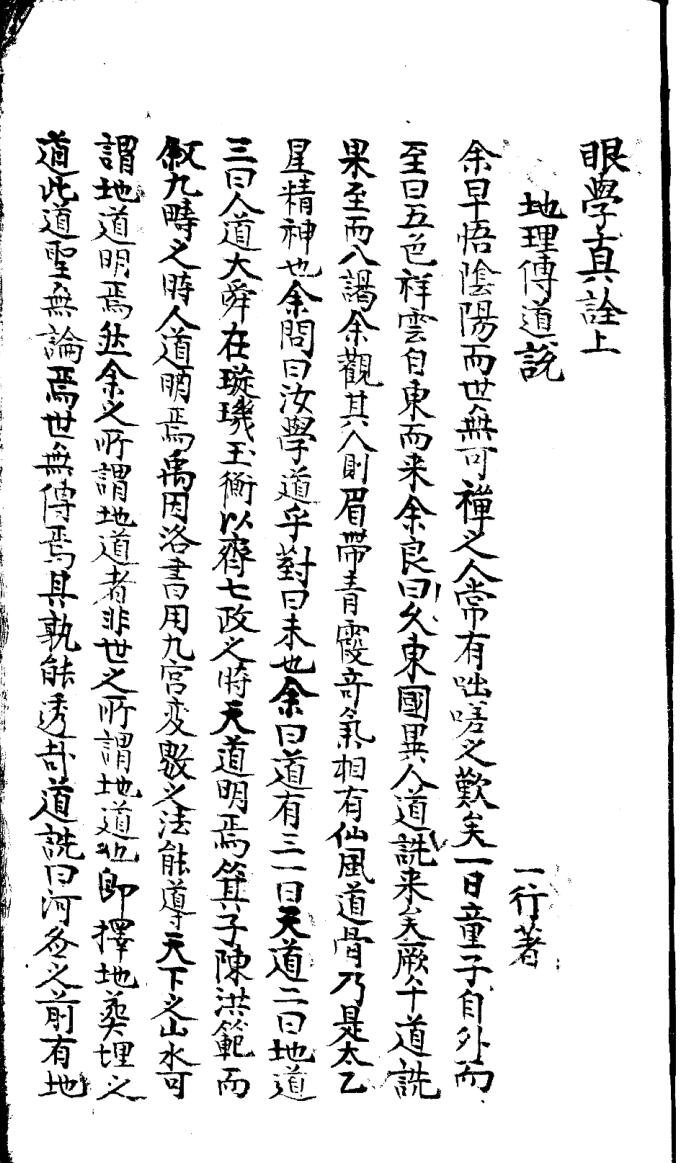 眼學真詮上
地理傳道說 一行著
余早悟陰陽而世無可禪之人常有咄嗟之歎矣一日童子自外而
至曰五色祥雲自東而来余良曰久東國異人道詵来矣厥午道詵
果至而入謁余觀其人則眉帶青霞奇氣相有仙風道骨乃是太乙
星精神也余問曰汝學道乎對曰未也余曰道有三一曰天道二曰地道
三曰人道大舜在璇璣玉衡以齊七政之時天道明焉箕子陳洪範而
叙九疇之時人道明焉禹因洛書用九宮変數之法能導天下之山水可
謂地道明焉然余之所謂地道者非世之所謂地道也即擇地葬埋之
道此道聖無論焉世無傳焉其孰能透哉道詵曰河圖之前有地